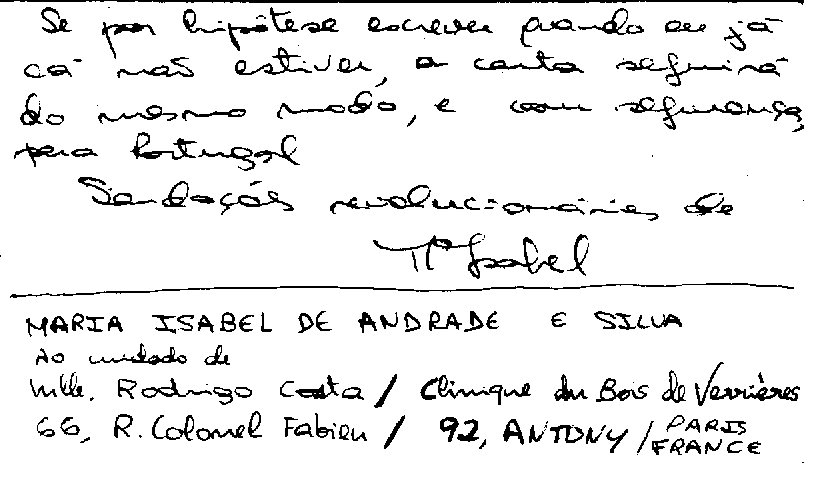 Se por hipótese escrever quando eu já
cá não estiver, a carta seguirá
do mesmo modo, e com segurança,
para Portugal
Saudações revolucionárias de
Mª Isabel
MARIA ISABEL DE ANDRADE E SILVA
Ao cuidado de
Mlle. Rodrigo Costa / Clinique du Bois de Verrières
66, R. Colonel Fabien / 92, ANTONY / PARIS
FRANCE